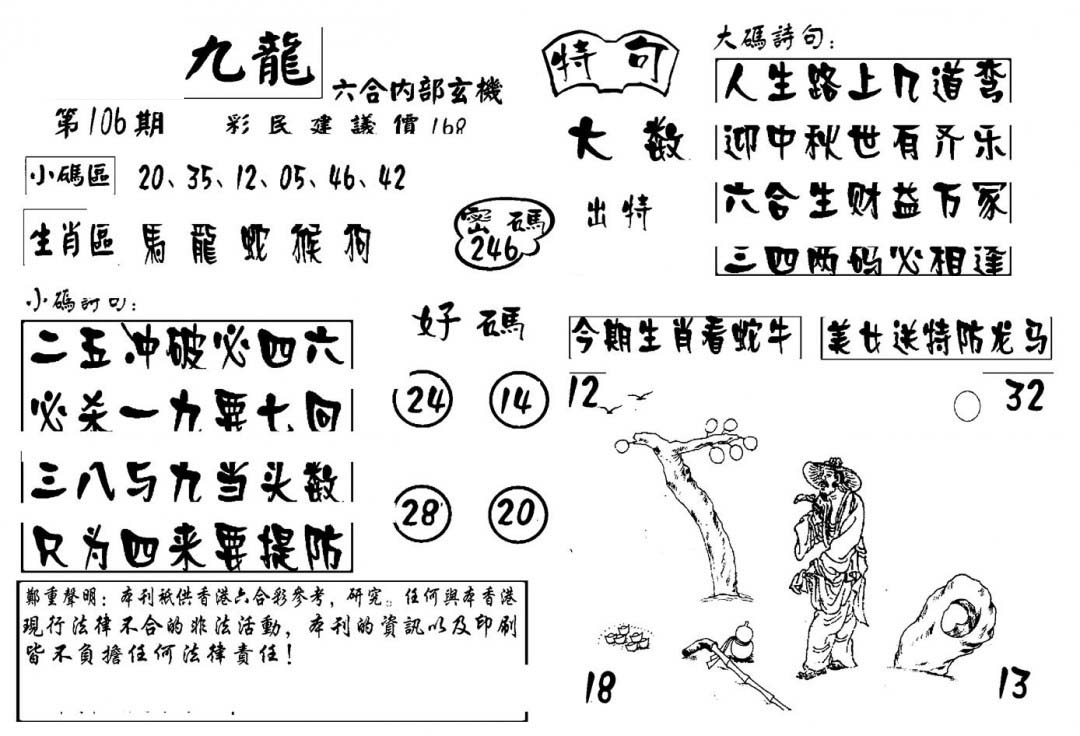 九龍
六合内部玄機
第106期
彩民建議價168
小碼區
20、35、12、05、46、42
生肖區
馬龍蛇猴狗
密碼
246
小碼詩句:
二五冲破必四六
必杀一九要七回
三八与九当头数
只为四来要提防
好碼
24
14
28
20
鄭重聲明:本刊祇供香港六合彩參考,研究。任何與本香港
現行法律不合的非法活動,本刊的資訊以及印刷
皆不負擔任何法律責任!
特句
大数
出特
大碼詩句:
人生路上几道弯
迎中秋世有齐乐
六合生财益万家
三四两码必相逢
今期生肖看蛇牛
美女送特防龙马
12
32
18
13